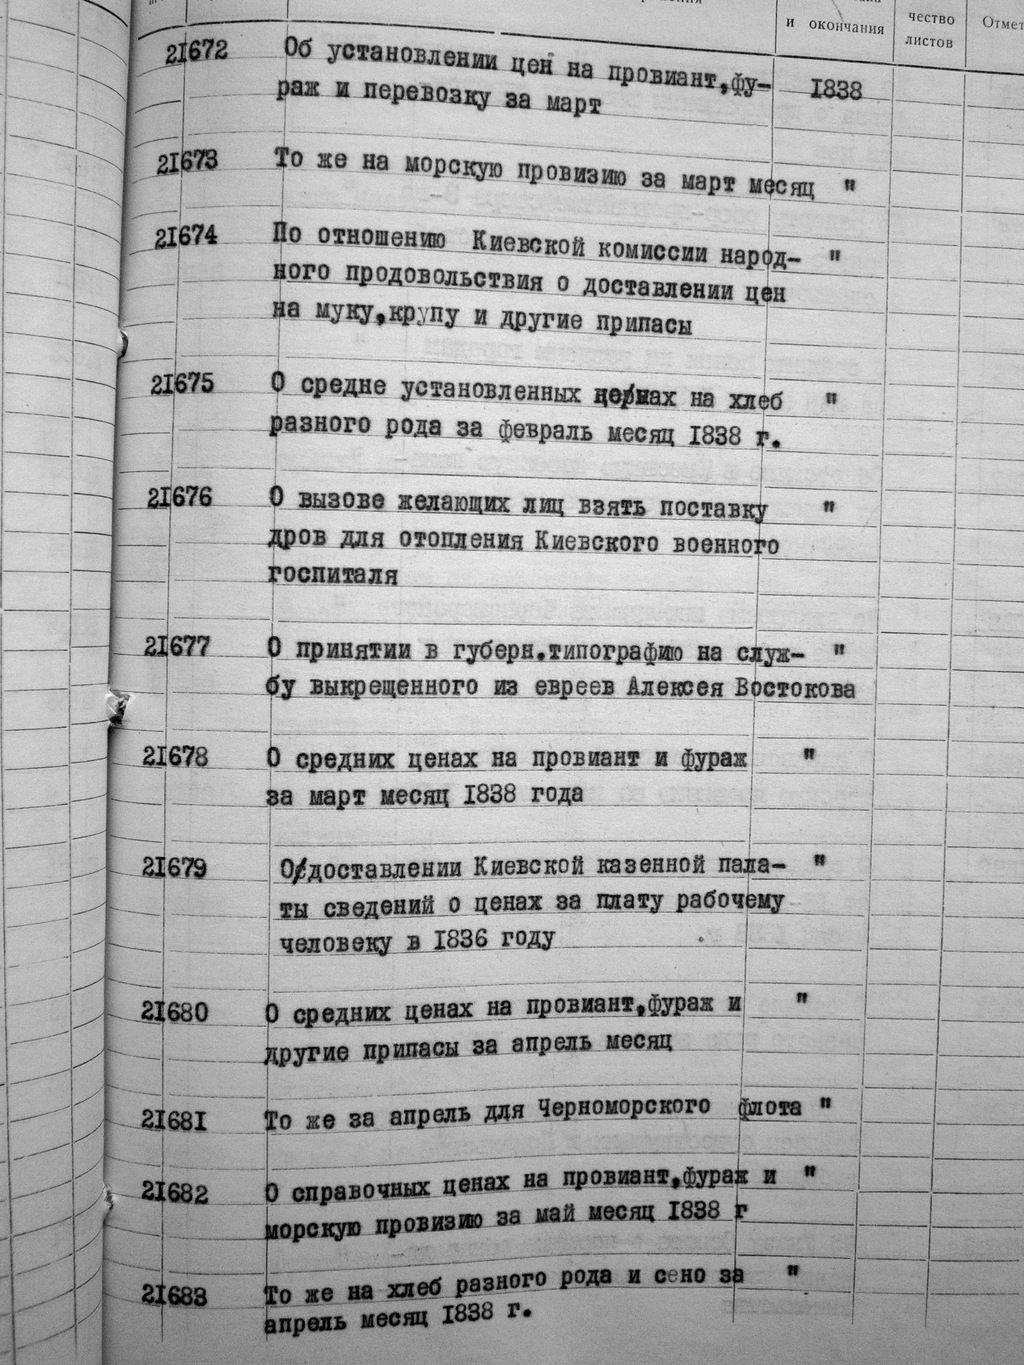 и окончания
чество
листов
Отмет
21672 Об установлении цен на провиант,фу- 1838
раж и перевозку за март
21673 То же на морскую провизию за март месяц "
21674 По отношению Киевской комиссии народ- "
ного продовольствия о доставлении цен
на муку,крупу и другие припасы
21675 О средне установленных ценах на хлеб "
разного рода за февраль месяц 1838 г.
21676 О вызове желающих лиц взять поставку "
дров для отопления Киевского военного
госпиталя
21677 О принятии в губерн.типографию на служ- "
бу выкрещенного из евреев Алексея Востокова
21678 О средних ценах на провиант и фураж "
за март месяц 1838 года
21679 О доставлении Киевской казенной пала- "
ты сведений о ценах за плату рабочему
человеку в 1836 году
21680 О средних ценах на провиант,фураж и "
другие припасы за апрель месяц
21681 То же за апрель для Черноморского флота "
21682 О справочных ценах на провиант,фураж и "
морскую провизию за май месяц 1838 г
21683 То же на хлеб разного рода и сено за "
апрель месяц 1838 г.